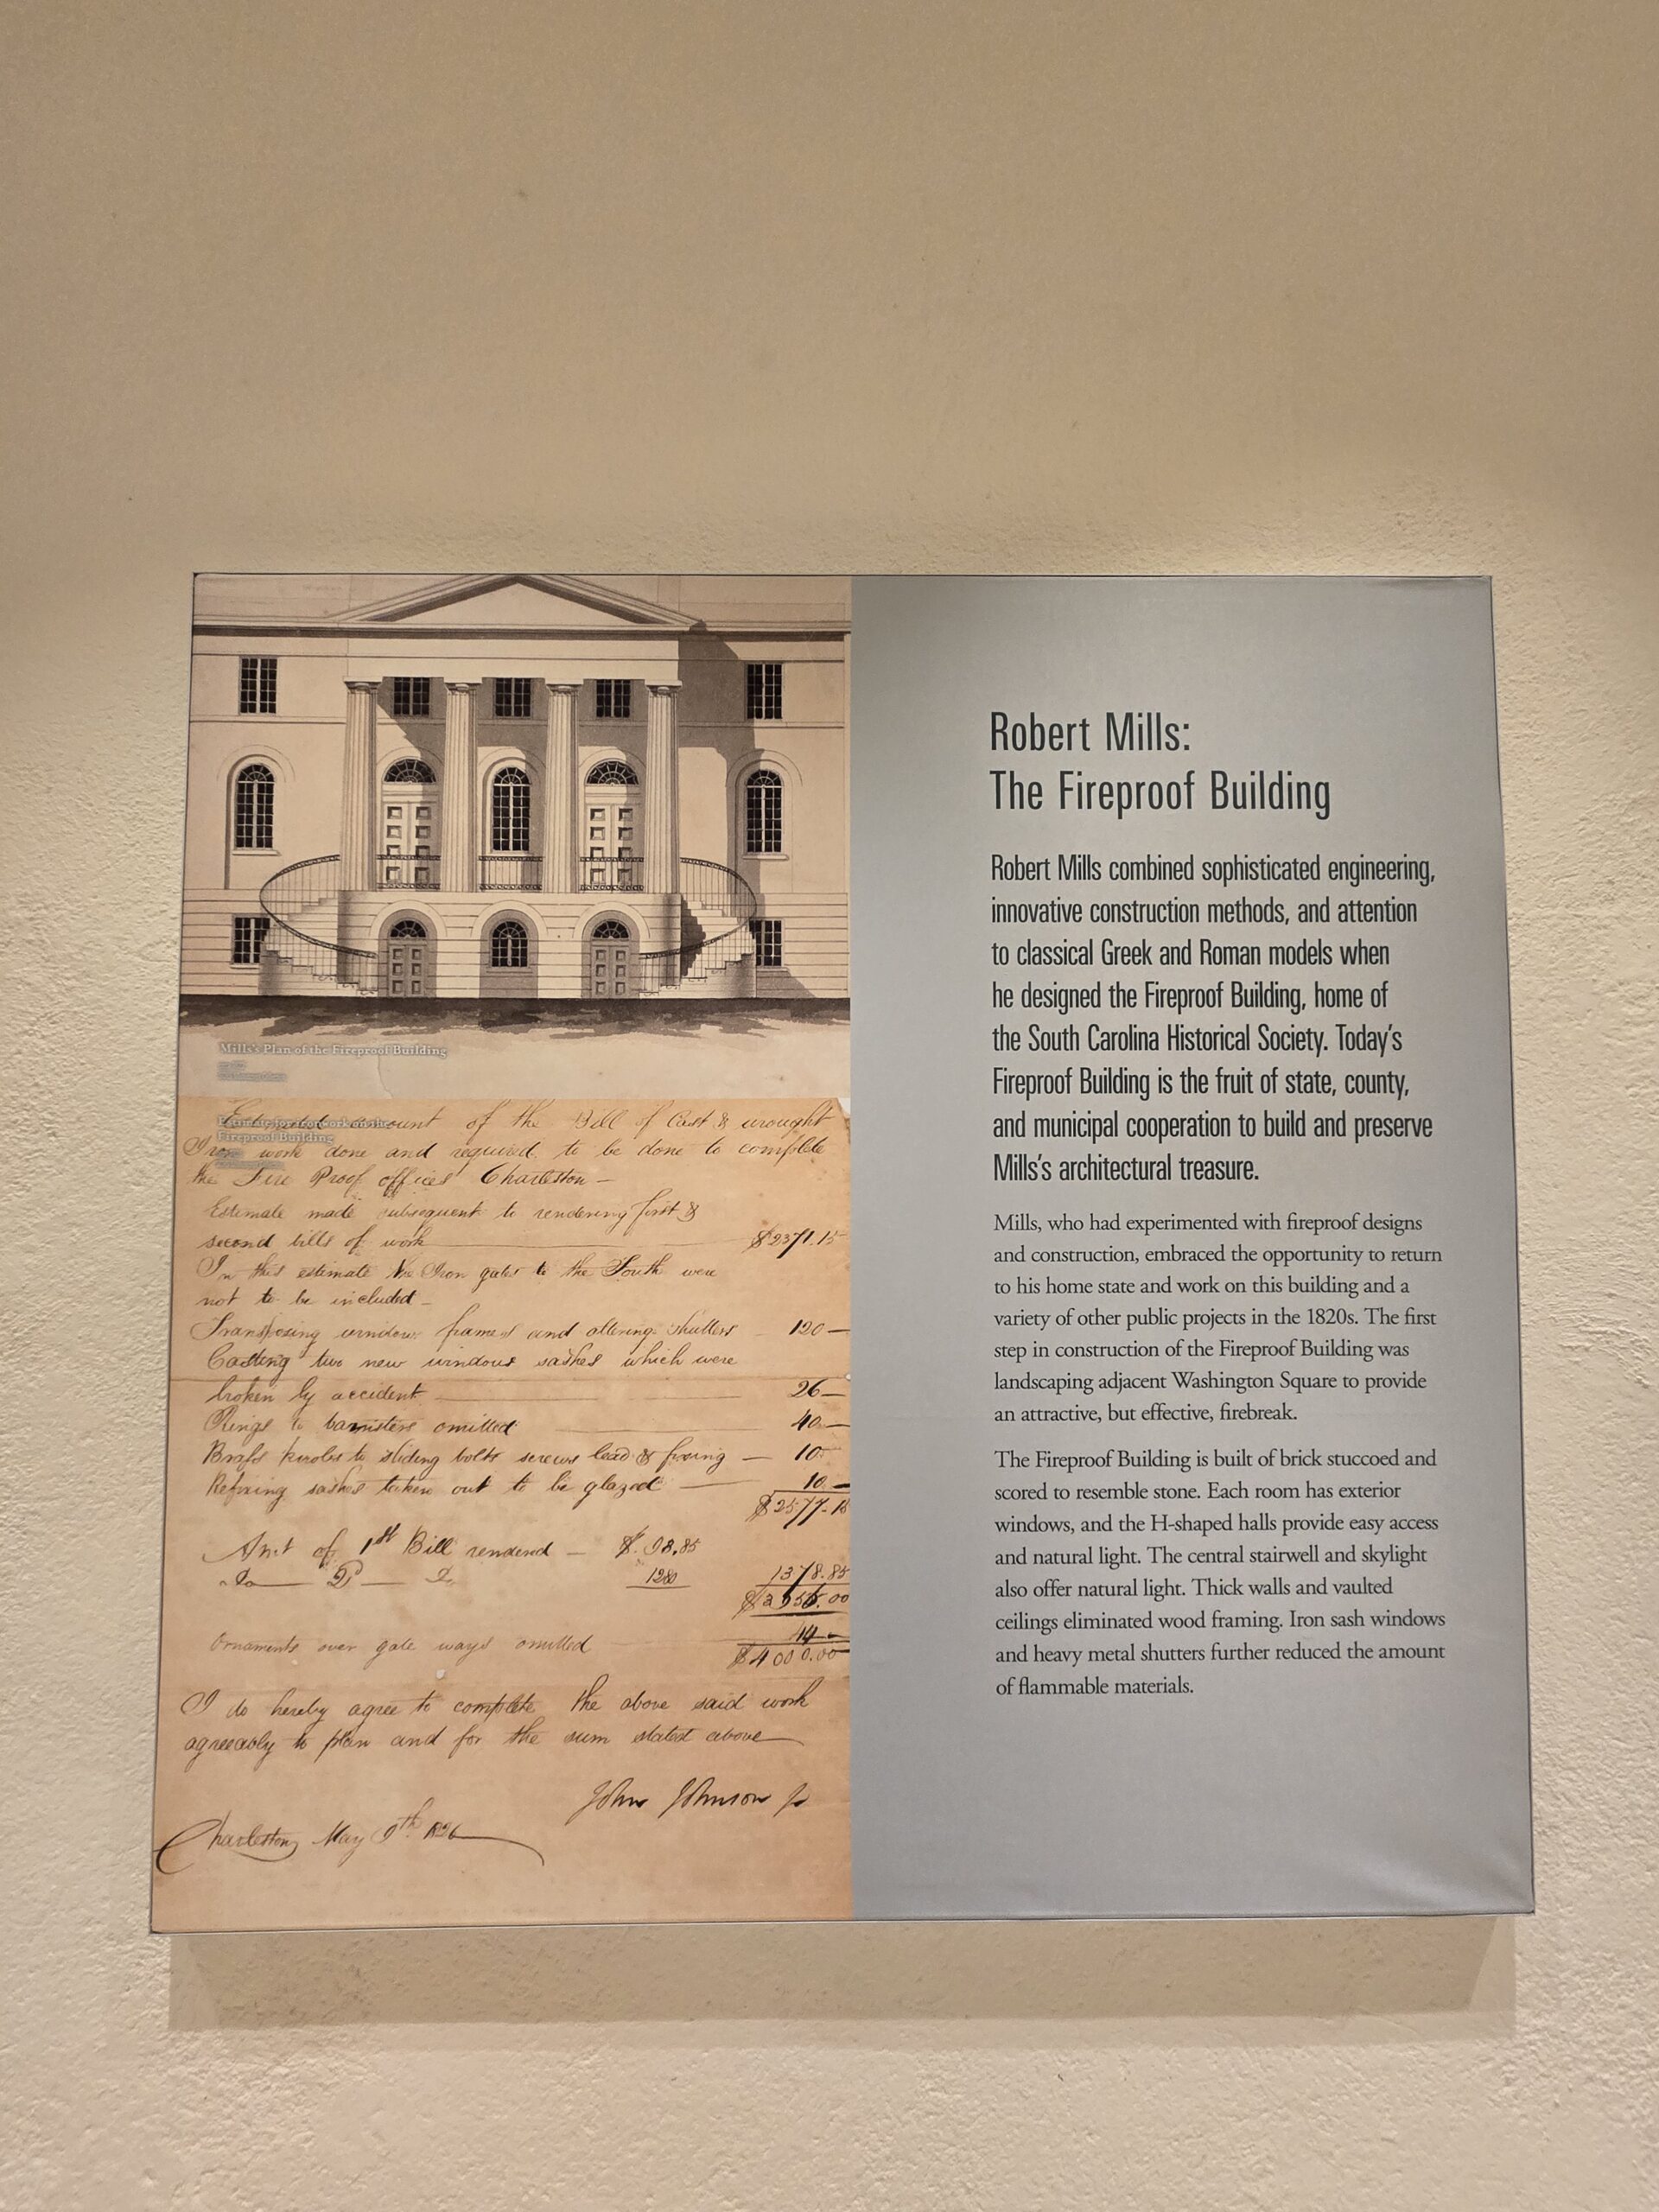 Mills's Plan of the Fireproof Building
Estimate for iron work on the
Fireproof Building
account of the Bill of Cast & wrought
Iron work done and required to be done to complete
the Fire Proof offices Charleston —
Estimate made subsequent to rendering first &
second bills of work $2371.15
In this estimate the Iron gates to the South were
not to be included —
Transposing window frames and altering shutters 120 —
Casting two new windows sashes which were
broken by accident 26 —
Rings to bannisters omitted 40 —
Brass knobs to sliding bolts screws lead & fixing — 10
Refixing sashes taken out to be glazed — 10 —
$2577.15
Amt of 1st Bill rendered — $ 98.85
1280 1378.85
$3956.00
Ornaments over gate ways omitted 44 —
$4000.00
I do hereby agree to complete the above said work
agreeably to plan and for the sum stated above
John Johnson Jr
Charleston May 9th 1826
Robert Mills:
The Fireproof Building
Robert Mills combined sophisticated engineering,
innovative construction methods, and attention
to classical Greek and Roman models when
he designed the Fireproof Building, home of
the South Carolina Historical Society. Today's
Fireproof Building is the fruit of state, county,
and municipal cooperation to build and preserve
Mills's architectural treasure.
Mills, who had experimented with fireproof designs
and construction, embraced the opportunity to return
to his home state and work on this building and a
variety of other public projects in the 1820s. The first
step in construction of the Fireproof Building was
landscaping adjacent Washington Square to provide
an attractive, but effective, firebreak.
The Fireproof Building is built of brick stuccoed and
scored to resemble stone. Each room has exterior
windows, and the H-shaped halls provide easy access
and natural light. The central stairwell and skylight
also offer natural light. Thick walls and vaulted
ceilings eliminated wood framing. Iron sash windows
and heavy metal shutters further reduced the amount
of flammable materials.